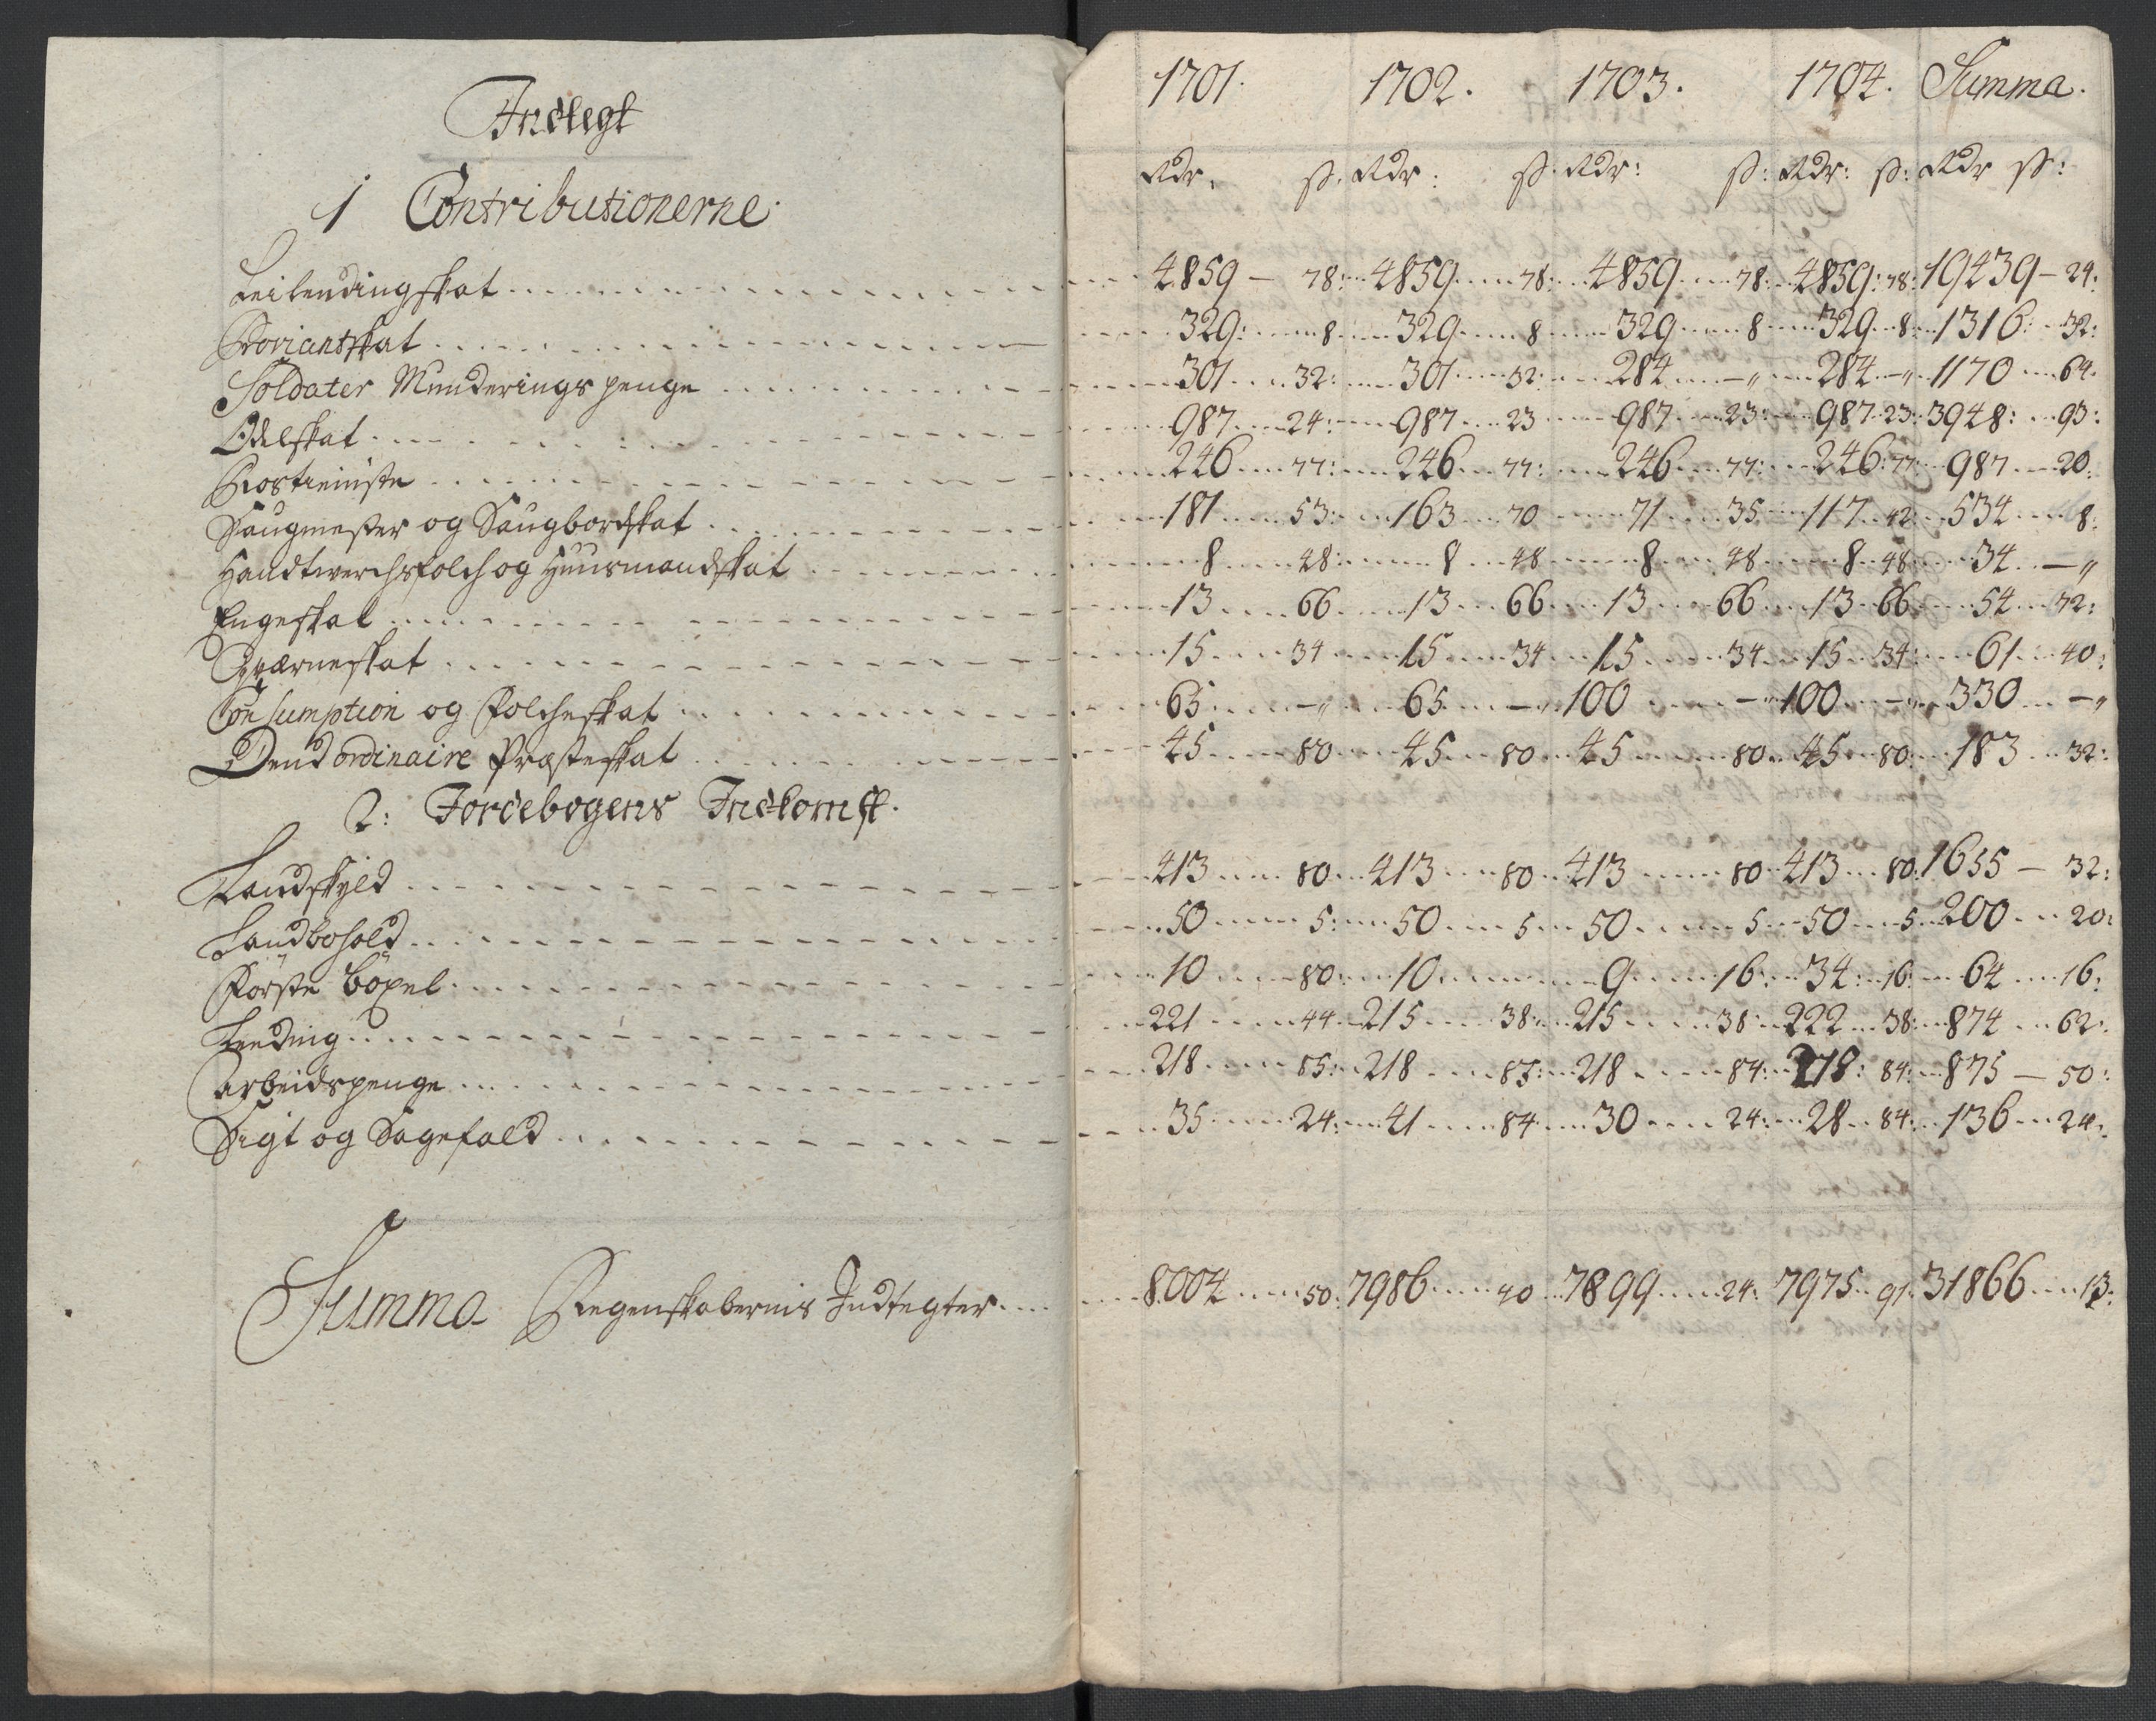 Indtegt
1 Contributionerne
1701. 1702. 1703. 1704. Summa.
Rdr: ß. Rdr: ß. Rdr: ß: Rdr: ß: Rdr ß:
Leilendingskat 4859 – 78: 4859 78: 4859 78: 4859: 78: 19439 – 24:
Proviantskat 329: 8 329 8 329 8 329 8: 1316: 32:
Soldater Munderings penge 301 32: 301 32: 284 – „ 284 – „ 1170 64.
Odelskat 987 24: 987 23 987 23: 987 23: 3948: 93:
Rostieniste 246 77: 246 77: 246 77: 246: 77 987 20:
Saugmester og Saugbordskat 181 53: 163 70 71 35 117 42: 534 8:
Handtwerchsfolch og Huusmandskat 8 48: 8 48 8 48 8 48: 34 – „
Engeskat 13 66 13 66 13 66 13 66 54 72:
Qværneskat 15 34 15 34 15 34 15 34: 61 40:
Consumption og Folcheskat 65 – „ 65 – „ 100 – „ 100 – „ 330 – „
Dend ordinaire Præsteskat 45 80 45 80 45 80 45 80: 183 32:
2: Jordebogens Indkomst.
Landskyld 413 80 413 80 413 80 413 80: 1655 – 32:
Landbohold 50 5: 50 5 50 5 50 5 200 20:
Förste böxel 10 80: 10 9 16: 34: 16: 64 16:
Leding 221 44 215 38: 215 38 222 38: 874 62:
Arbeidspenge 218 85: 218 85: 218 84: 218: 84: 875 – 50:
Sigt og Sagefald 35 24: 41 84 30 24: 28 84: 136 24:
Summa Regenskabernis Indtegter 8004 50: 7986 40 7899 24: 7975 91. 31866 13: